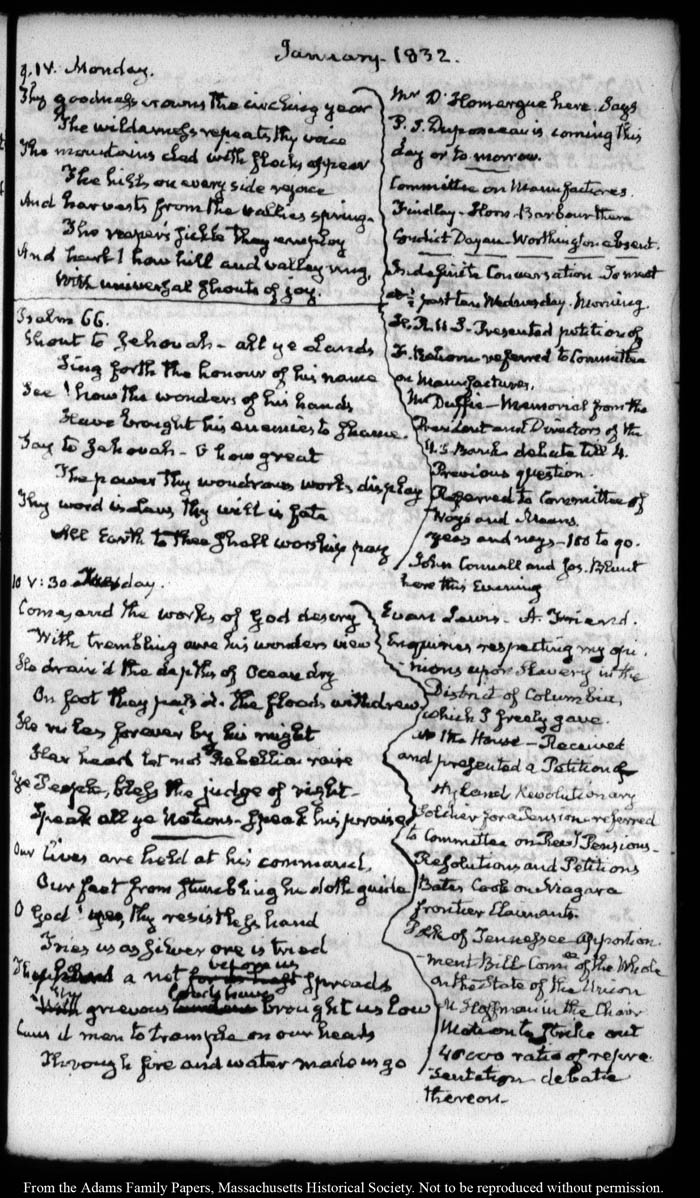 January 1832.
9. IV. Monday.
Thy goodness crowns the circling year
The wilderness repeats thy voice
The mountains clad with flocks appear
The hills on every side rejoice
And harvests from the vallies spring.
The reapers sickle they employ
And hark! how hill and valley ring,
With universal shouts of joy.
Psalm 66.
Shout to Jehovah - all ye Lands
Sing forth the honour of his name
See! how the wonders of his hands
Have brought his enemies to shame.
Say to Jehovah - O how great
The power thy wondrous works display
Thy word is Law, thy will is fate
All Earth to thee shall worship pay
Mr D'Homergue here. Says
P. S. Duponceau is coming this
day or to morrow.
Committee on Manufactures.
Findlay - Horn - Barbour there
Condict Dayan - Worthington absent.
Indefinite Conversation To meet
at ½ past ten Wednesday Morning.
H. R. U S - Presented petition of
referred to Committee
on Manufactures.
McDuffie - Memorial from the
President and Directors of the
U. S. Bank debate till 4.
Previous question.
Referred to Committee of
Ways and Means.
yeas and nays - 100 to 90.
John Connell and Jos. Blunt
here this Evening
10 V:30 Tuesday.
Come, and the works of God descry
With trembling awe his wonders view
He drain'd the depths of Ocean dry
On foot they pass'd - the floods withdrew
He rules forever by his might
Her head let not Rebellion raise
Ye People, bless the judge of right -
Speak all ye Nations - speak his praise
Our Lives are held at his command,
Our feet from stumbling he doth guide
O God! yes, thy resistless hand
Tries us as silver ore is tried
a net before us spreads
grievous brought us low
Caus'd men to trample on our heads
Through fire and water made us go
Evan Lewis - A Friend.
Enquiries respecting my opi-
nions upon Slavery in the
District of Columbia,
which I freely gave.
In the House - Received
and presented a Petition of
Hyland Revolutionary
Soldier for a Pension - referred
to Committee on Revy Pensions -
Resolutions and Petitions
Bates Cook on Niagara
frontier Claimants.
Polk of Tennessee - apportion-
-ment Bill Comee of the Whole
on the State of the Union
Hoffman in the Chair
Motion to strike out
48000 ratio of repre-
sentation - debate
thereon -
From the Adams Family Papers, Massachusetts Historical Society. Not to be reproduced without permission.